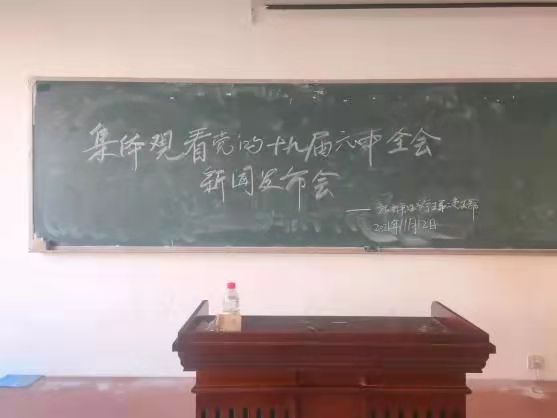 集体观看党的十九届六中全会
新闻发布会
第二党支部
2021年11月12日